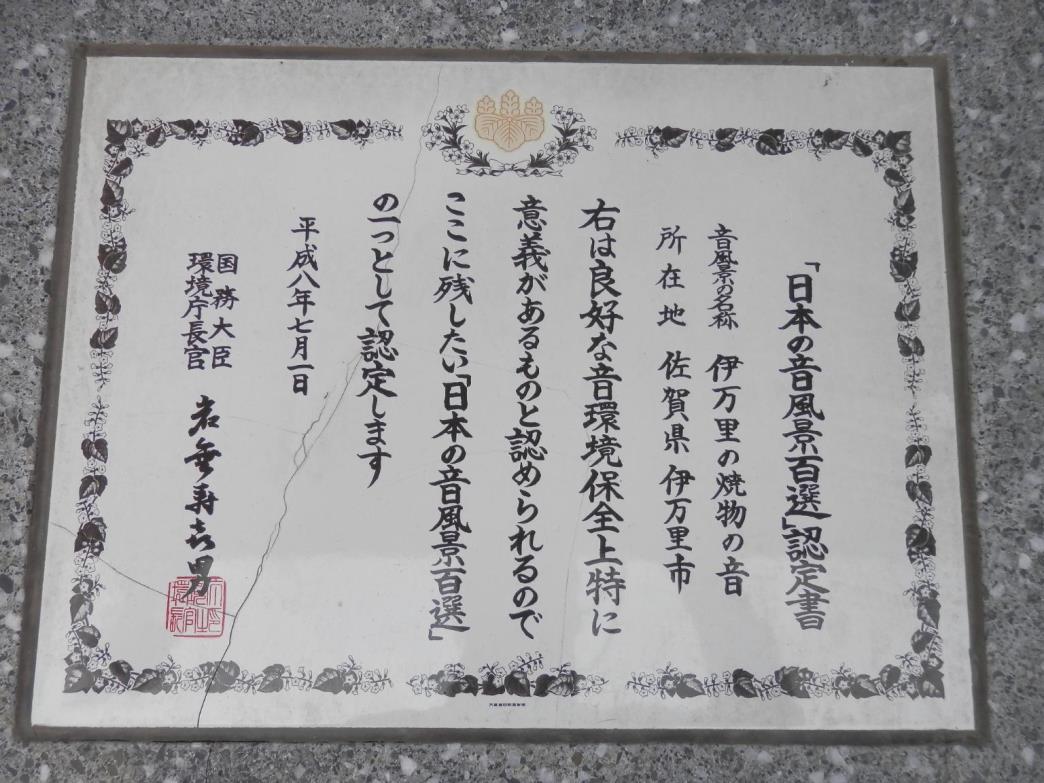 「日本の音風景百選」認定書
音風景の名称　伊万里の焼物の音
所在地　佐賀県伊万里市
右は良好な音環境保全上特に
意義があるものと認められるので
ここに残したい「日本の音風景百選」
の一つとして認定します
平成八年七月一日
国務大臣
環境庁長官
岩垂寿喜男